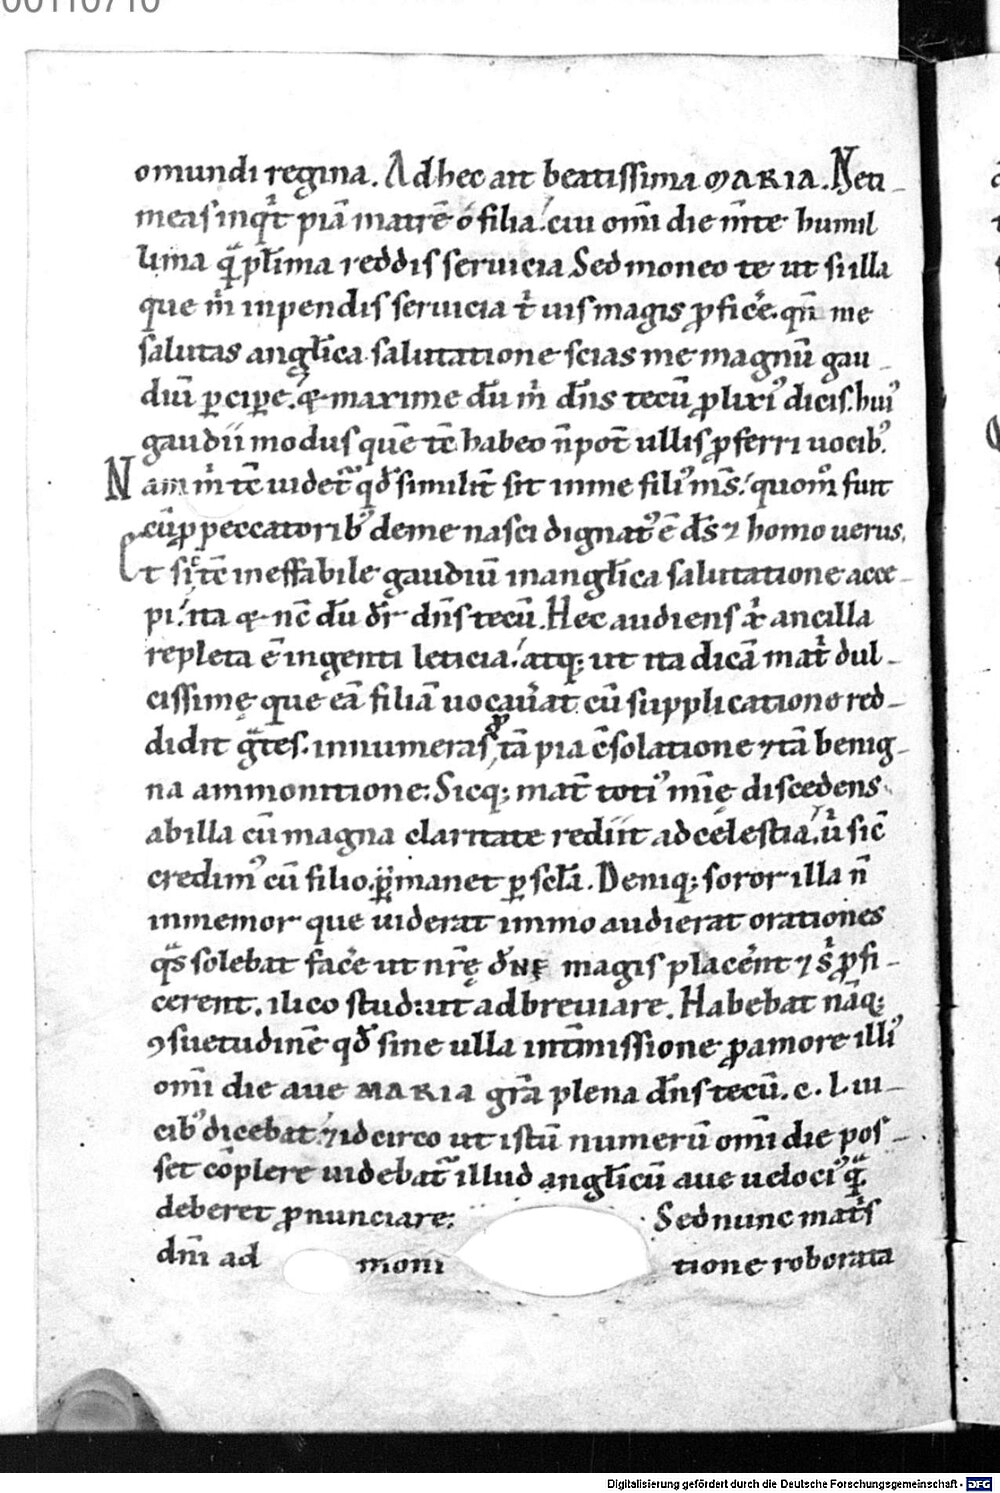 00110710
omundi regina. Ad hec ait beatissima MARIA. Ne ti-
meas inq̇t piā matrē ō filia! cui om̄i die m̄te humil
lima q̄ pl̄ima reddis seruicia Sed moneo te ut si illa
que m̄ inpendis seruicia t̓ uis magis ꝓficēe. qn̄ me
salutas angl̄ica salutatione scias me magnū gau-
diū ꝑciꝑe. & maxime dū m̓ dn̄s tecū ꝓlixi᾽ dicis. hui᾽
gaudii modus quē tē habeo n̄ pot̄ ullis ꝓferri uocib᾽.
Nam m̓ tē uidet᾽ qd̄ similit̄ sit in me fili᾽ m̄s! quom̊ fuit
cū ꝓ peccatorib᾽ de me nasci dignat᾽ ē ds̄ ⁊ homo uerus.
Et sic̄ tc̄ ineffabile gaudiū in angl̄ica salutatione acce-
pi! ita & nc̄ dū dr̄ dn̄s tecū. Hec audiens x̄ ancilla
repleta ē ingenti leticia! atq; ut ita dicā mat̓ dul-
cissimę que eā filiā uocau̓at cū supplicatione red-
didit gr̄es. innumeras ꝓ tā pia c̄solatione ⁊ tā benig-
na ammonitione. Sicq; mat̄ toti᾽ mīę discedens
ab illa cū magna claritate rediit ad celestia. u̓ sic̄
credim᾽ cū filio ꝑmanet ꝑ scl̄a. Deniq; soror illa n̄
inmemor que uiderat immo audierat orationes
q̄s solebat face̓ ut nr̄ę dn̄ę magis place̓nt ⁊ s̓ ꝓfi-
cerent. ilico studuit adbreuiare. Habebat nāq;
ꝯsuetudinē qd̄ sine ulla int̄missione ꝓ amore illi᾽
om̄i die aue MARIA gr̄a plena dn̄s tecū. c. L. ui-
cib᾽ dicebat. ⁊ idcirco ut istū numerū om̄i die pos-
set cōplere uidebat᾽ illud angl̄icū aue ueloci᾽ q̄
deberet ꝓnunciare. Sed nunc mat̓s
dn̄i ad moni tione roborata
Digitalisierung gefördert durch die Deutsche Forschungsgemeinschaft - DFG